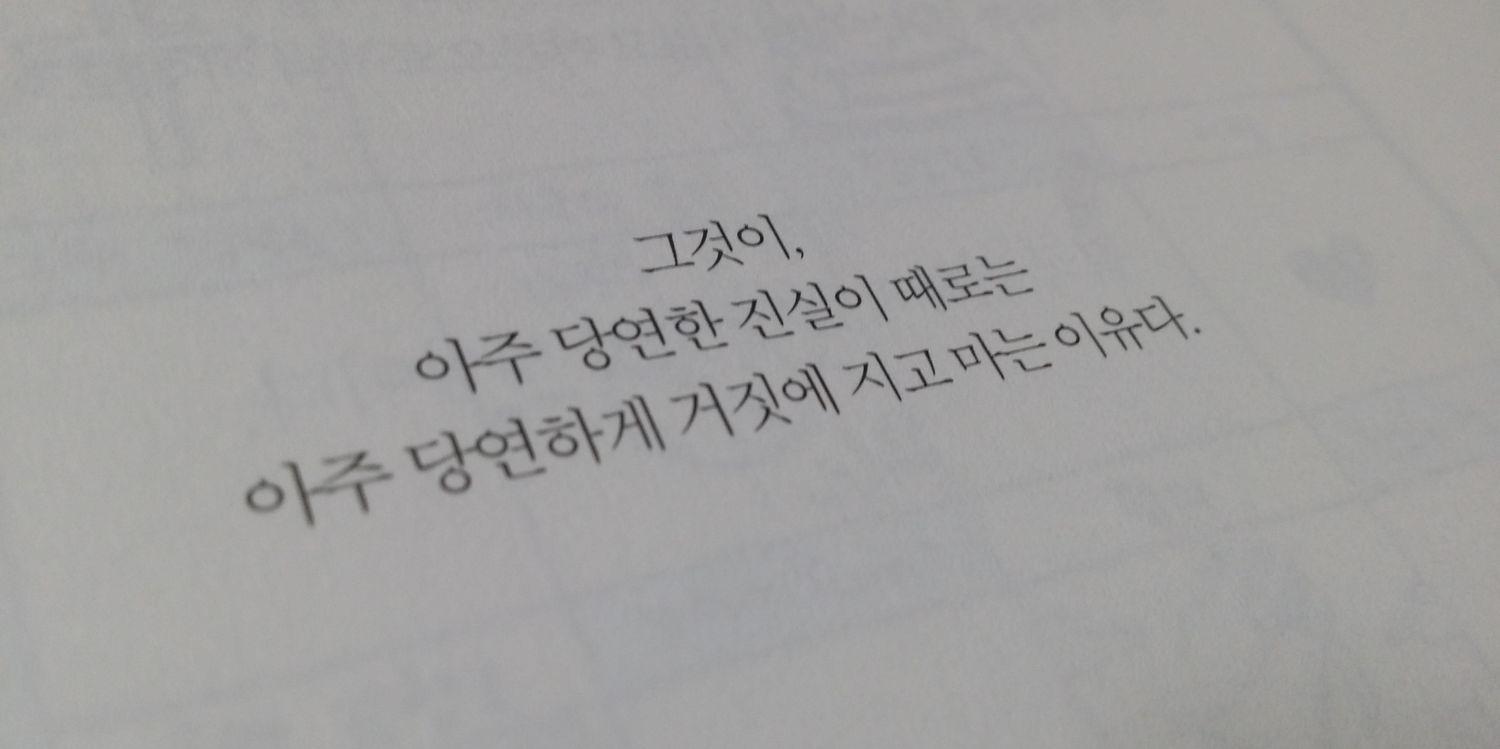 그것이,
아주 당연한 진실이 때로는
아주 당연하게 거짓에 지고 마는 이유다.